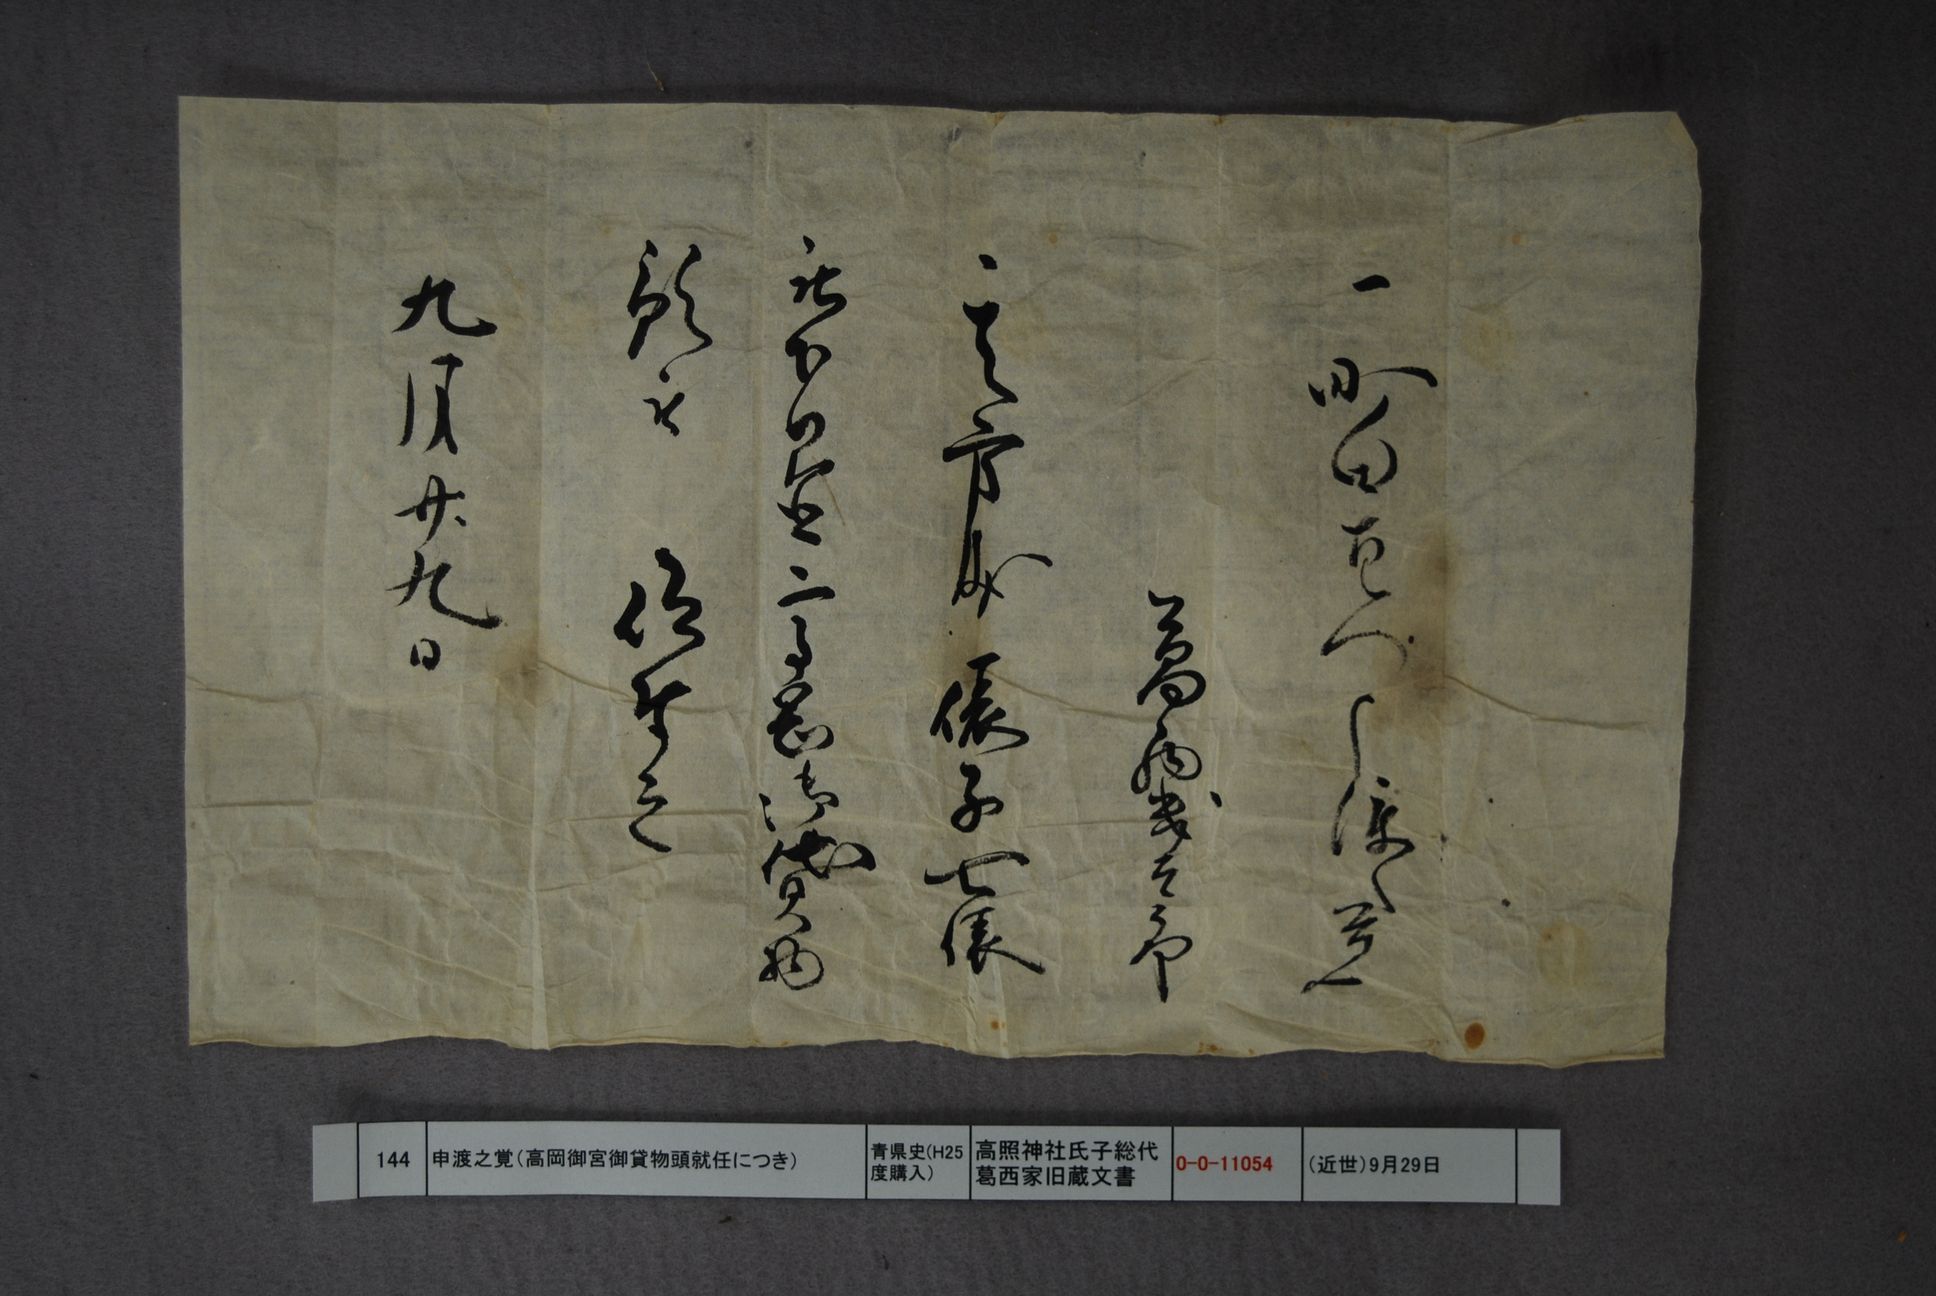 一 町田 申渡之覚
葛西
一其方儀 俵子七俵
被下 高岡御貸物
頭被 仰付之
九月廿九日
144 申渡之覚（高岡御宮御貸物頭就任につき） 青県史(H25度購入) 高照神社氏子総代葛西家旧蔵文書 0-0-11054 (近世)9月29日